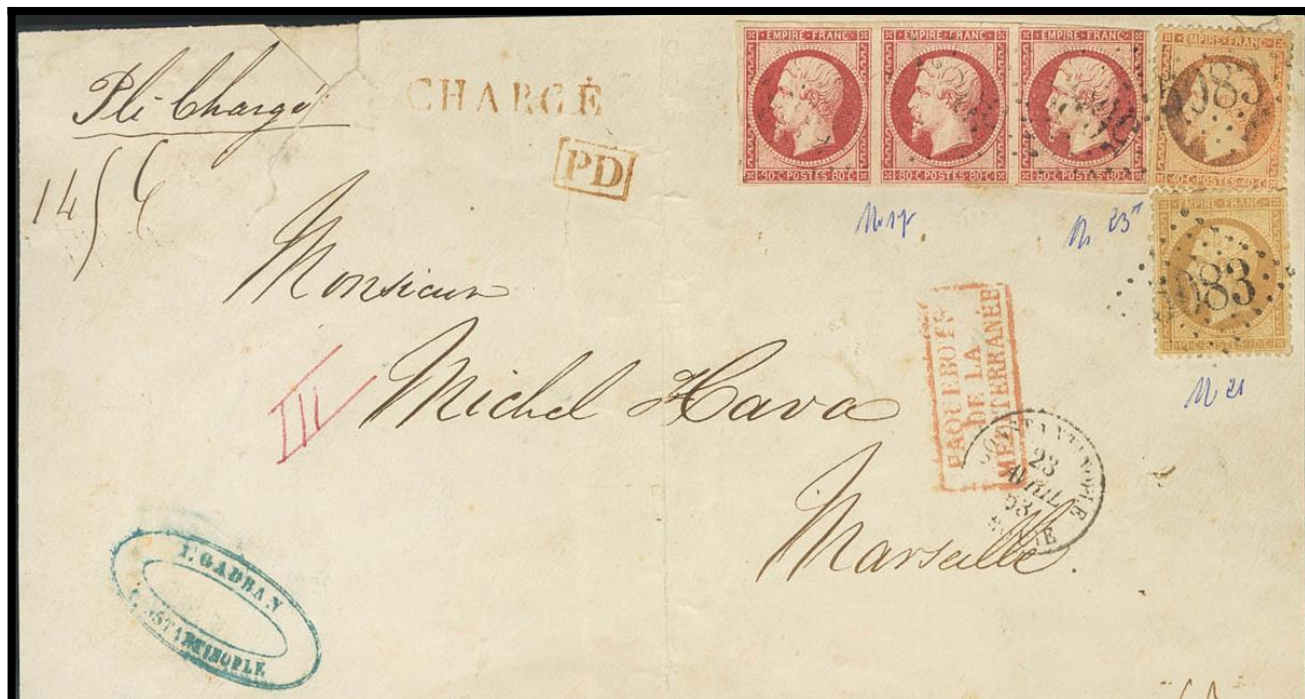 Pli Chargé
CHARGÉ
PD
EMPIRE FRANC
80·C POSTES 80·C
EMPIRE FRANC
80·C POSTES 80·C
EMPIRE FRANC
80·C POSTES 80·C
EMPIRE FRANC
40·C POSTES 40·C
5083
EMPIRE FRANC
10·C POSTES 10·C
5083
No 17
No 21
Monsieur
Michel Hava
Marseille.
III
PAQUEBOTS
DE LA
MÉDITERRANÉE
CONSTANTINOPLE
23
AVRIL
63
GADBAN
CONSTANTINOPLE